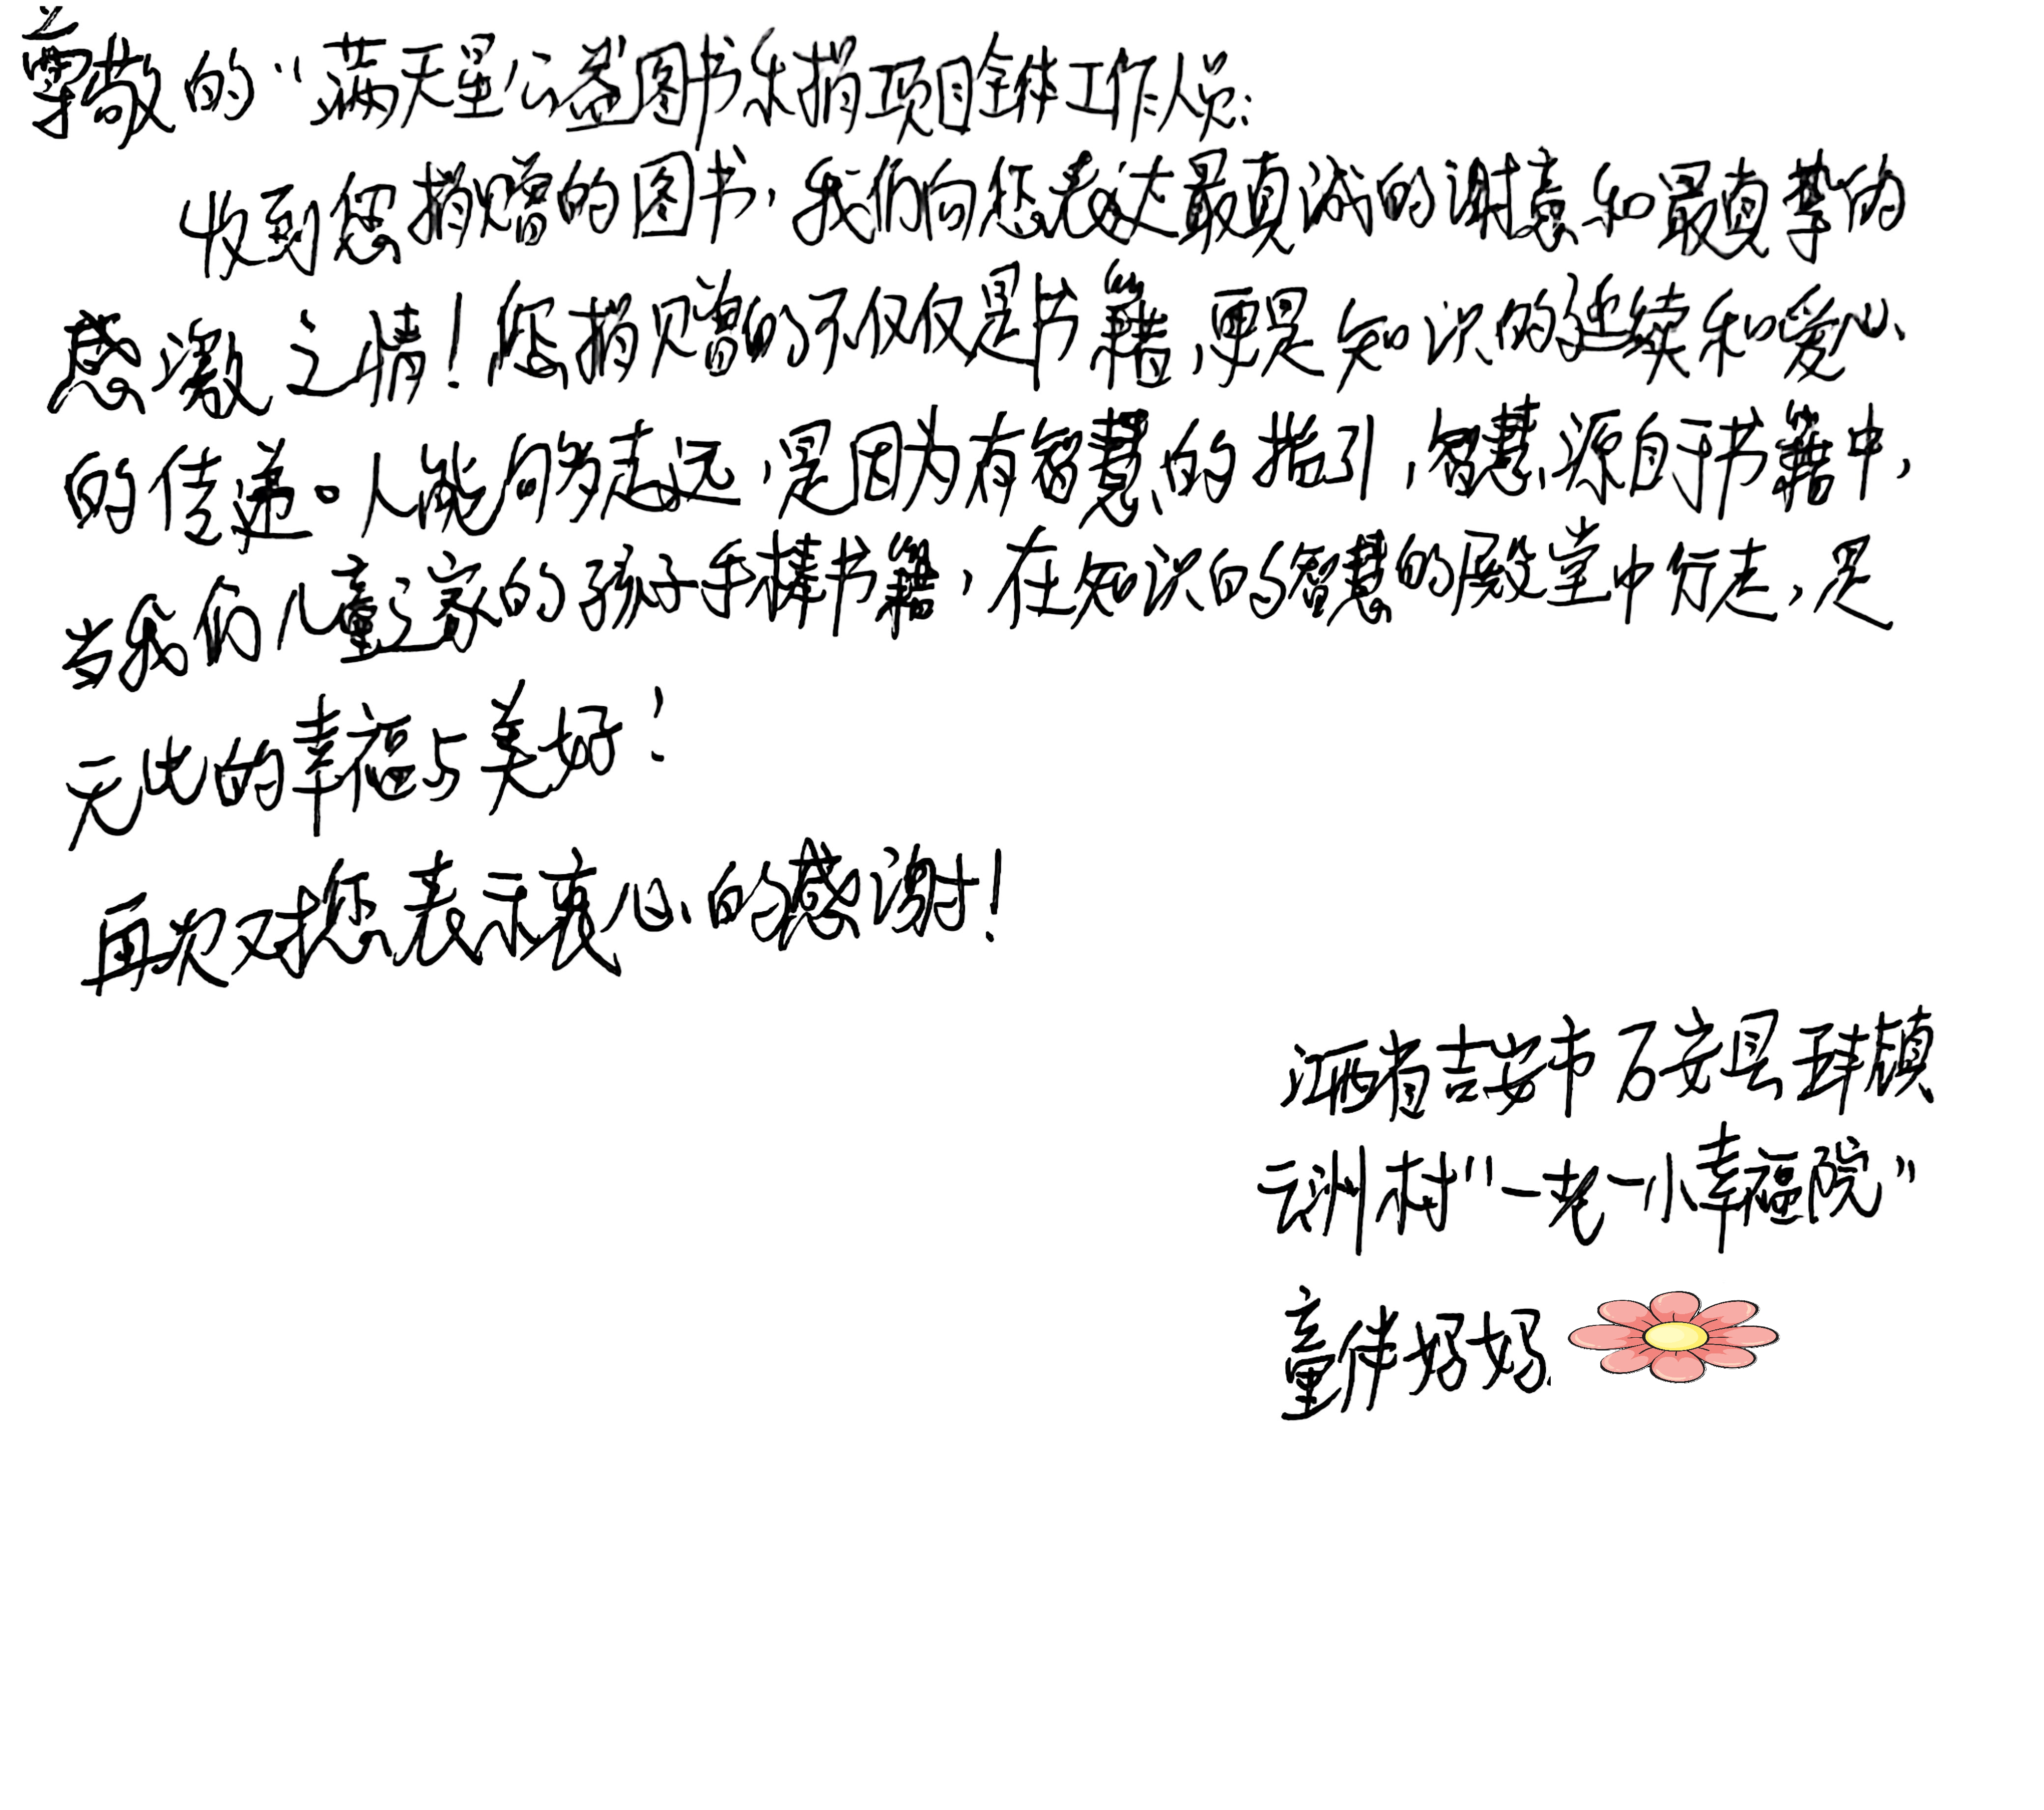 尊敬的“满天星公益图书乐捐项目全体工作人员：
收到您捐赠的图书，我们向您表达最真诚的谢意和最真挚的
感激之情！您捐赠的不仅仅是书籍，更是知识的延续和爱心
的传递。人能够走远，是因为有智慧的指引，智慧源自于书籍中，
当我们儿童之家的孩子手捧书籍，在知识的与智慧的殿堂中行走，是
无比的幸福与美好！
再次对您表示衷心的感谢！
江西省吉安市 安县 镇
云洲村“一老一小幸福院”
童伴妈妈